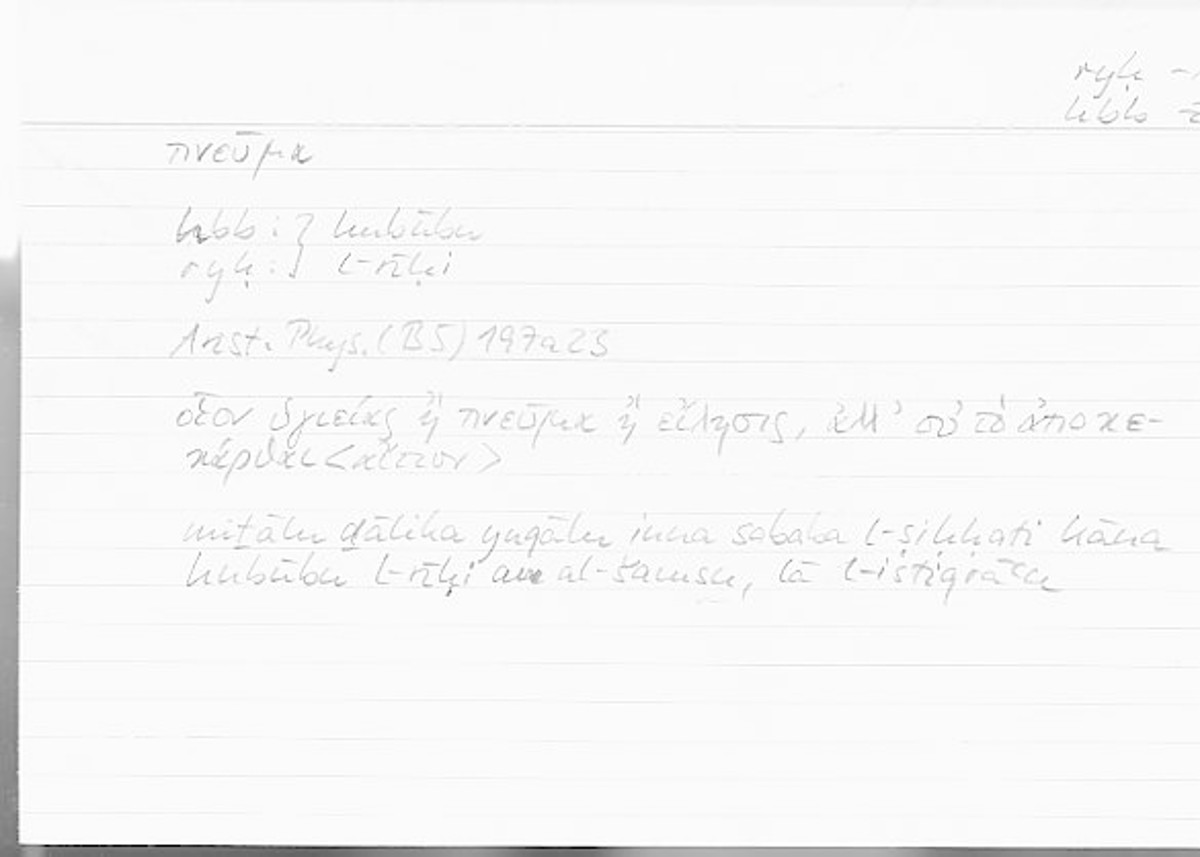 ryḥ
hbb
πνεῦμα
hbb : } hubūbu
ryḥ : } l-rīḥi
Arist. Phys. (B5) 197a23
οἷον ὑγιείας ἢ πνεῦμα ἢ εἵλησις, ἀλλ' οὐ τὸ ἀποκε-
κάρθαι <αἴτιον>
miṯālu ḏālika yuqālu inna sababa l-ṣiḥḥati kāna
hubūbu l-rīḥi aw al-šamsu, lā l-istiqrāʿu